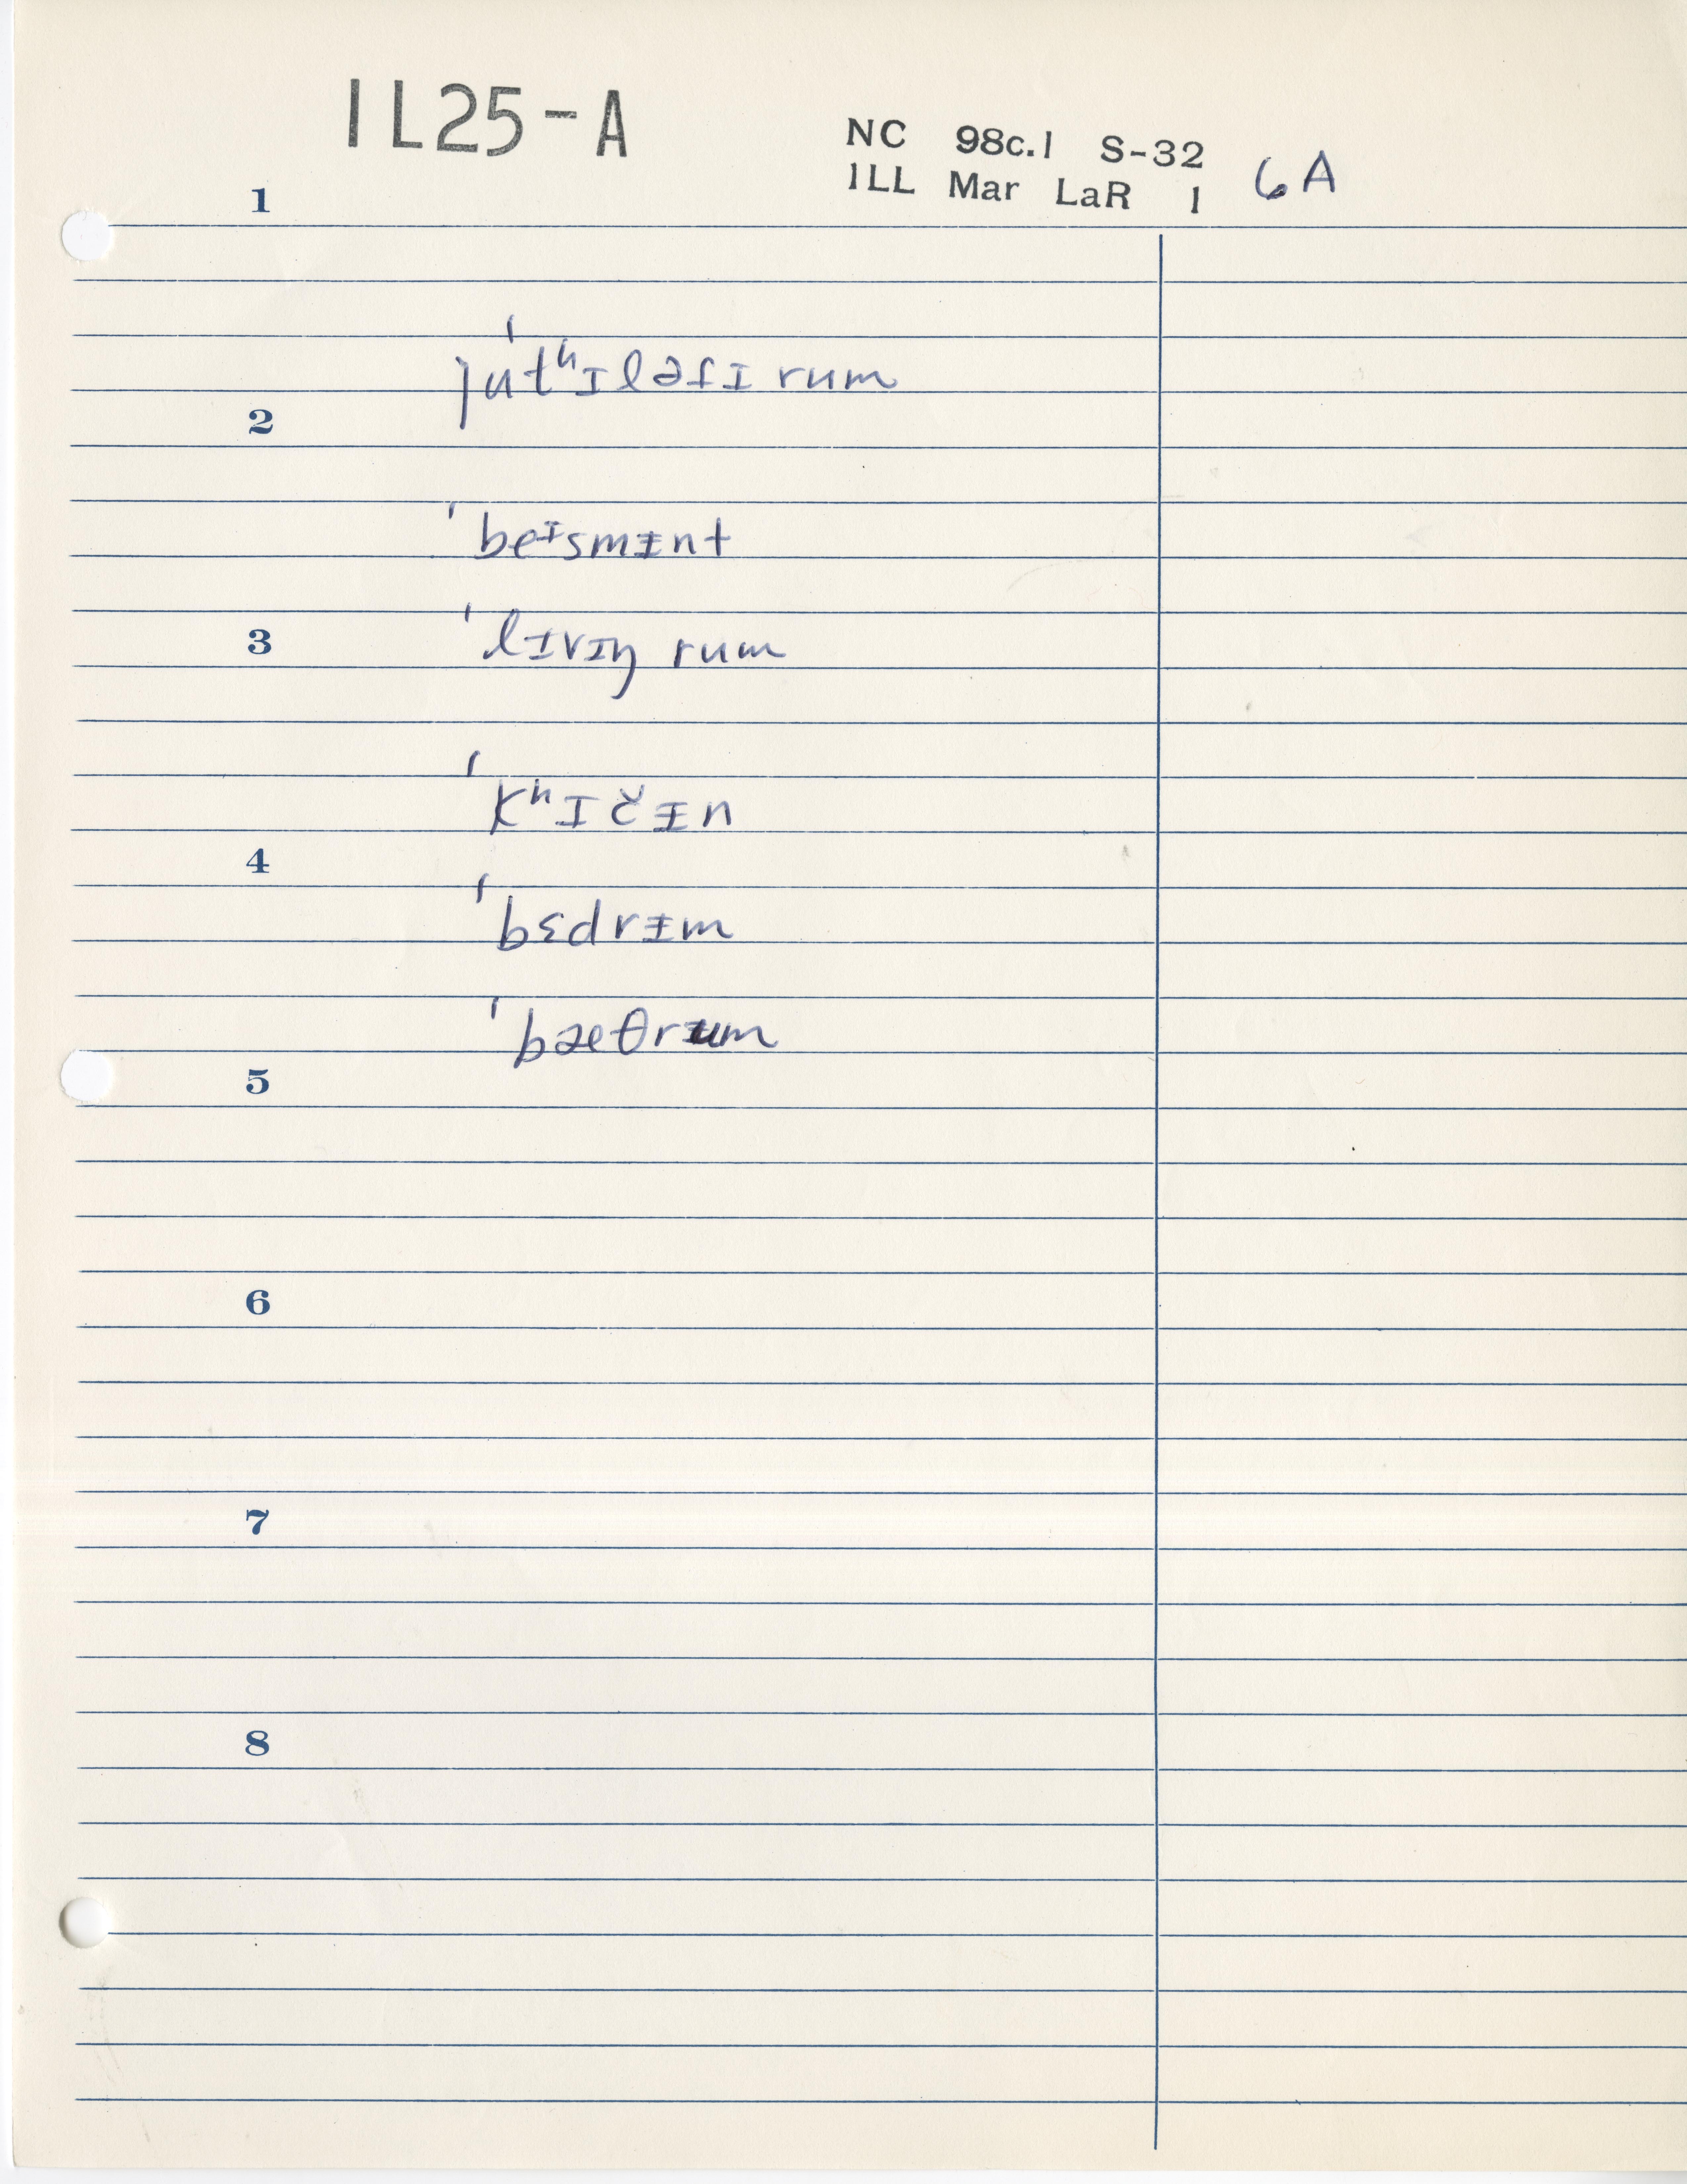 IL25-A
NC 98c.1 S-32
ILL Mar LaR 1 6A
1
ˈjutʰɪləfɪ rum
2
ˈbeᶦsmᵻnt
3
ˈlɪvɪŋ rum
ˈkʰɪčᵻn
4
ˈbɛdrᵻm
ˈbæθrum
5
6
7
8